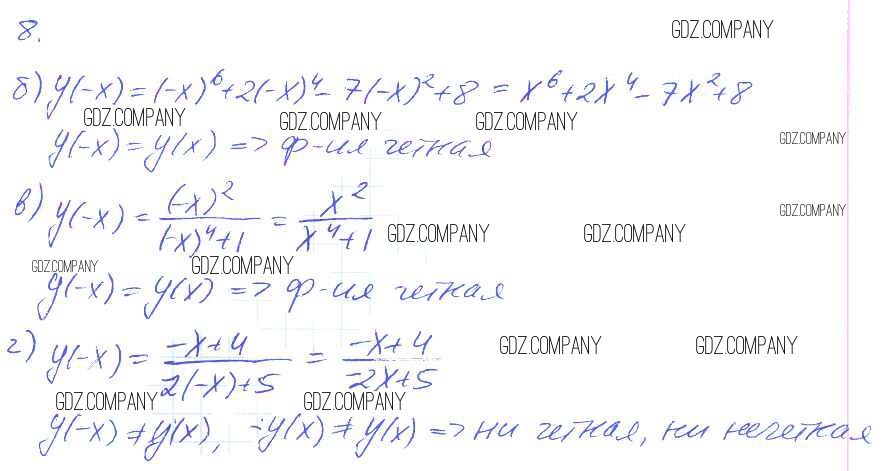 8.
GDZ.COMPANY
б) y(-x) = (-x)^6 + 2(-x)^4 - 7(-x)^2 + 8 = x^6 + 2x^4 - 7x^2 + 8
GDZ.COMPANY GDZ.COMPANY GDZ.COMPANY
y(-x) = y(x) => ф-ия четная
GDZ.COMPANY
в) y(-x) = (-x)^2 / ((-x)^4 + 1) = x^2 / (x^4 + 1)
GDZ.COMPANY
GDZ.COMPANY GDZ.COMPANY
GDZ.COMPANY GDZ.COMPANY
y(-x) = y(x) => ф-ия четная
г) y(-x) = (-x+4) / (2(-x)+5) = (-x+4) / (-2x+5)
GDZ.COMPANY GDZ.COMPANY
GDZ.COMPANY GDZ.COMPANY
y(-x) ≠ y(x), -y(x) ≠ y(x) => ни четная, ни нечетная